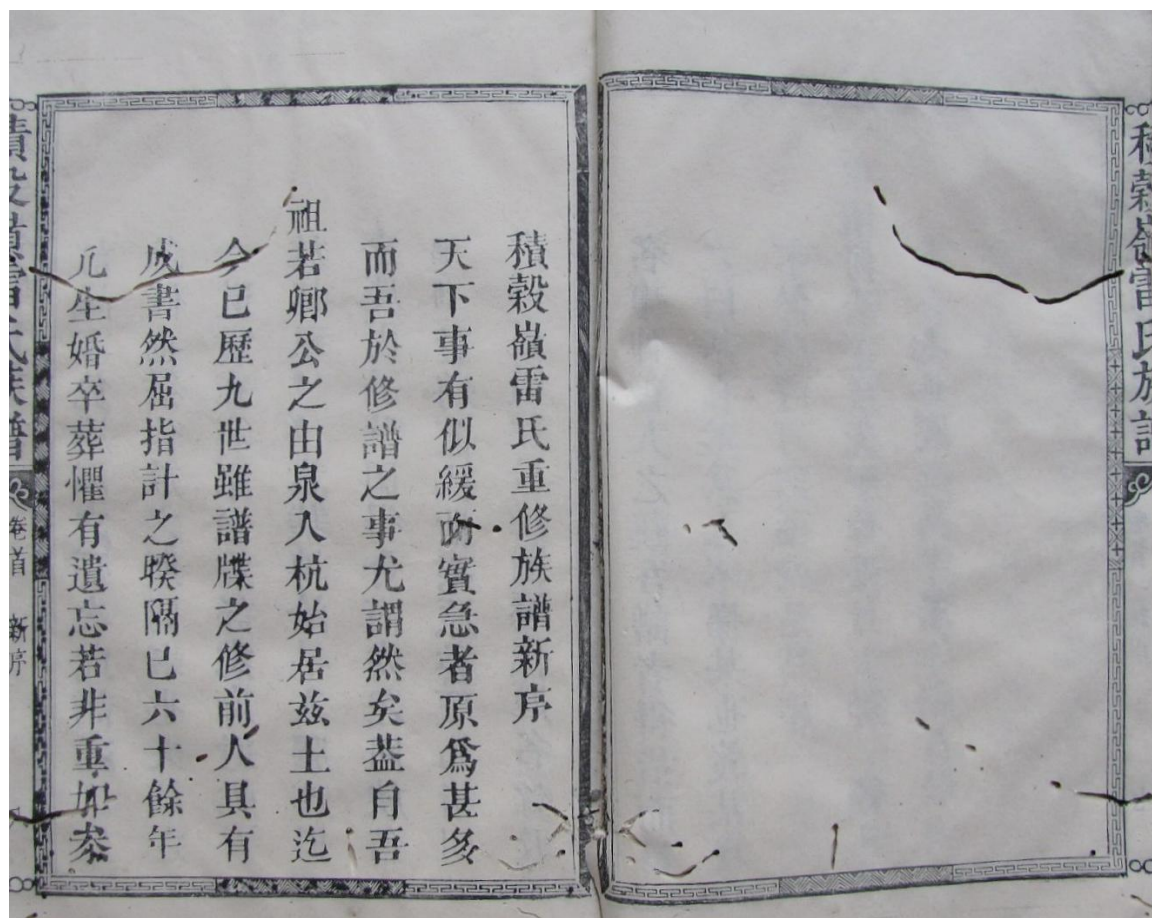 積穀嶺雷氏族譜
積穀嶺雷氏重修族譜新序
天下事有似緩而實急者原爲甚多
而吾於修譜之事尤謂然矣葢自吾
祖若鄉公之由泉入杭始居兹土也迄
今已歷九世雖譜牒之修前人具有
成書然屈指計之暌隔已六十餘年
凡生婚卒葬懼有遺忘若非重加叅
積穀嶺雷氏族譜
卷首
新序